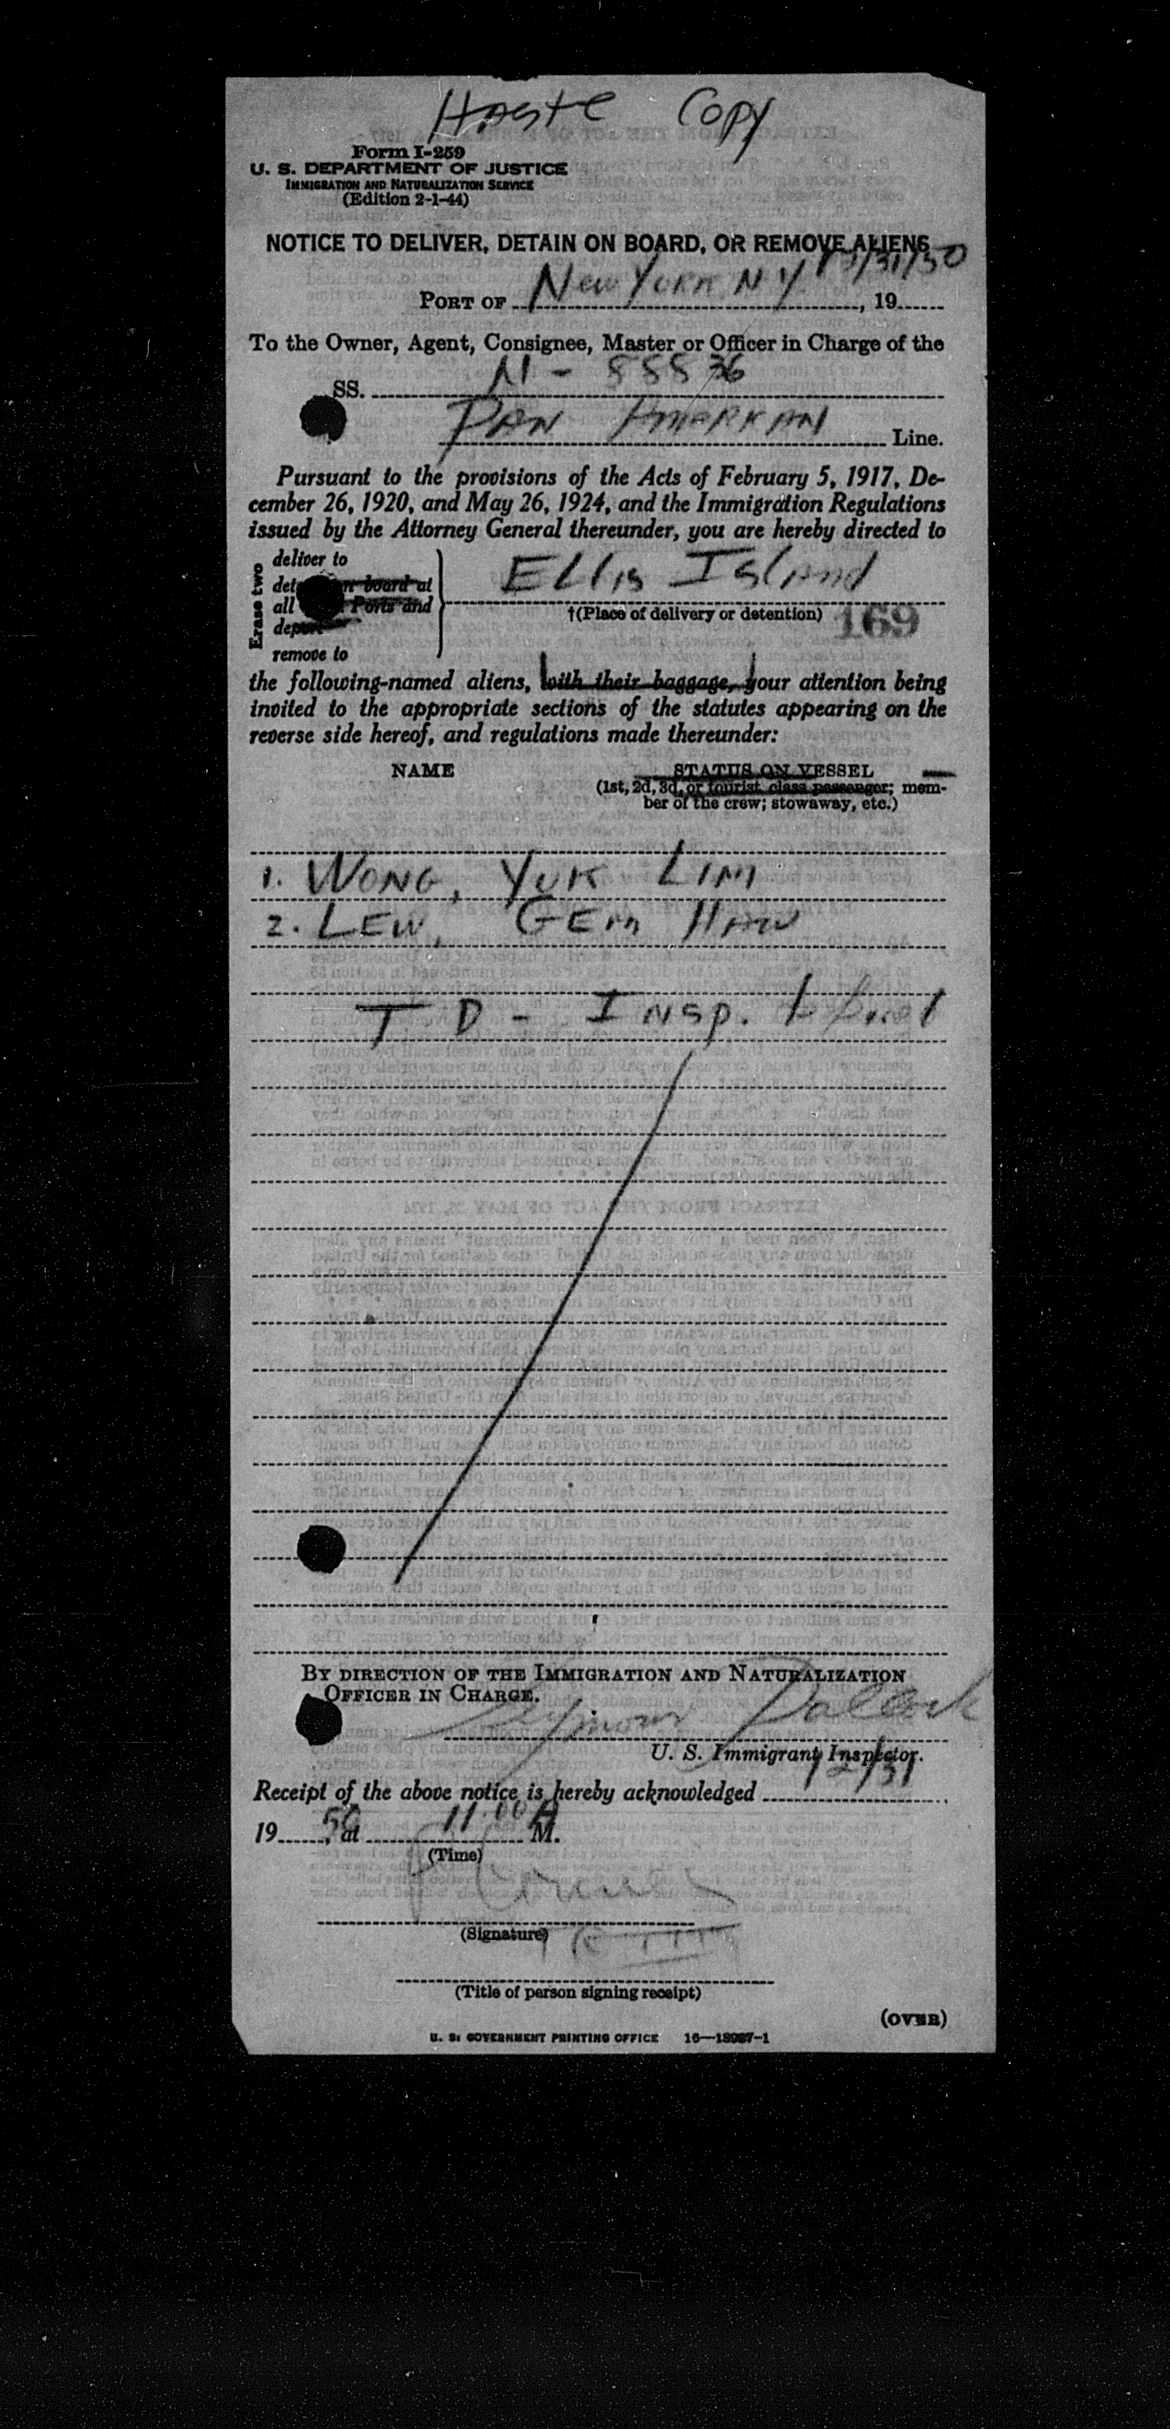 Haste Copy
Form I-259
U. S. DEPARTMENT OF JUSTICE
IMMIGRATION AND NATURALIZATION SERVICE
(Edition 2-1-44)
NOTICE TO DELIVER, DETAIN ON BOARD, OR REMOVE ALIENS
12/31/50
PORT OF New York N Y, 19
To the Owner, Agent, Consignee, Master or Officer in Charge of the
SS. N - 88836
PAN AMERICAN Line.
Pursuant to the provisions of the Acts of February 5, 1917, De-
cember 26, 1920, and May 26, 1924, and the Immigration Regulations
issued by the Attorney General thereunder, you are hereby directed to
Erase two
deliver to
board at
all Ports and
remove to
Ellis Island
†(Place of delivery or detention) 169
the following-named aliens, with their baggage, your attention being
invited to the appropriate sections of the statutes appearing on the
reverse side hereof, and regulations made thereunder:
NAME STATUS ON VESSEL
(1st, 2d, 3d, or tourist class passenger; mem-
ber of the crew; stowaway, etc.)
1. WONG, YUK LIM
2. LEW, GEM HAW
T D - INSp.
BY DIRECTION OF THE IMMIGRATION AND NATURALIZATION
OFFICER IN CHARGE.
Seymour Pollock
U. S. Immigrant Inspector.
Receipt of the above notice is hereby acknowledged 12/31
19 50, at 11:00 A M.
(Time)
(Signature)
(Title of person signing receipt)
(OVER)
U. S. GOVERNMENT PRINTING OFFICE 16—18987-1